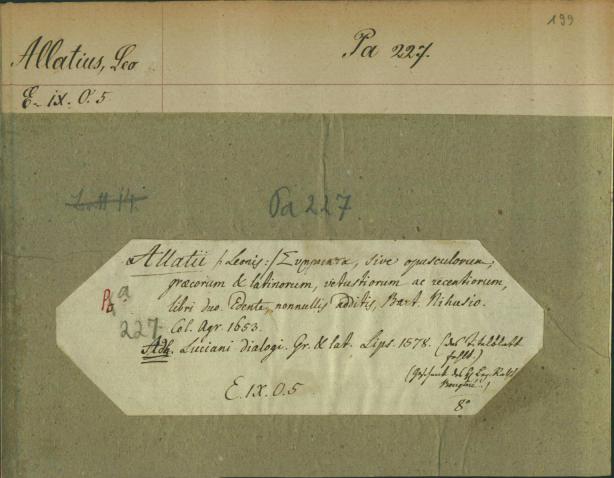 199
Allatius, Leo
Pa 227.
E. IX. O. 5
Pa 227
Allatii /: Leonis :/ Συμμικτα, sive opusculorum,
græcorum & latinorum, vetustiorum ac recentiorum,
libri duo. Edente, nonnullis additis, Bart. Nihusio.
Col. Agr. 1653.
Pa
227
Adh. Luciani dialogi. Gr. & lat. Lips. 1578. (das Titelblatt
fehlt.)
(Geschenk des H
E. IX. O. 5
8°